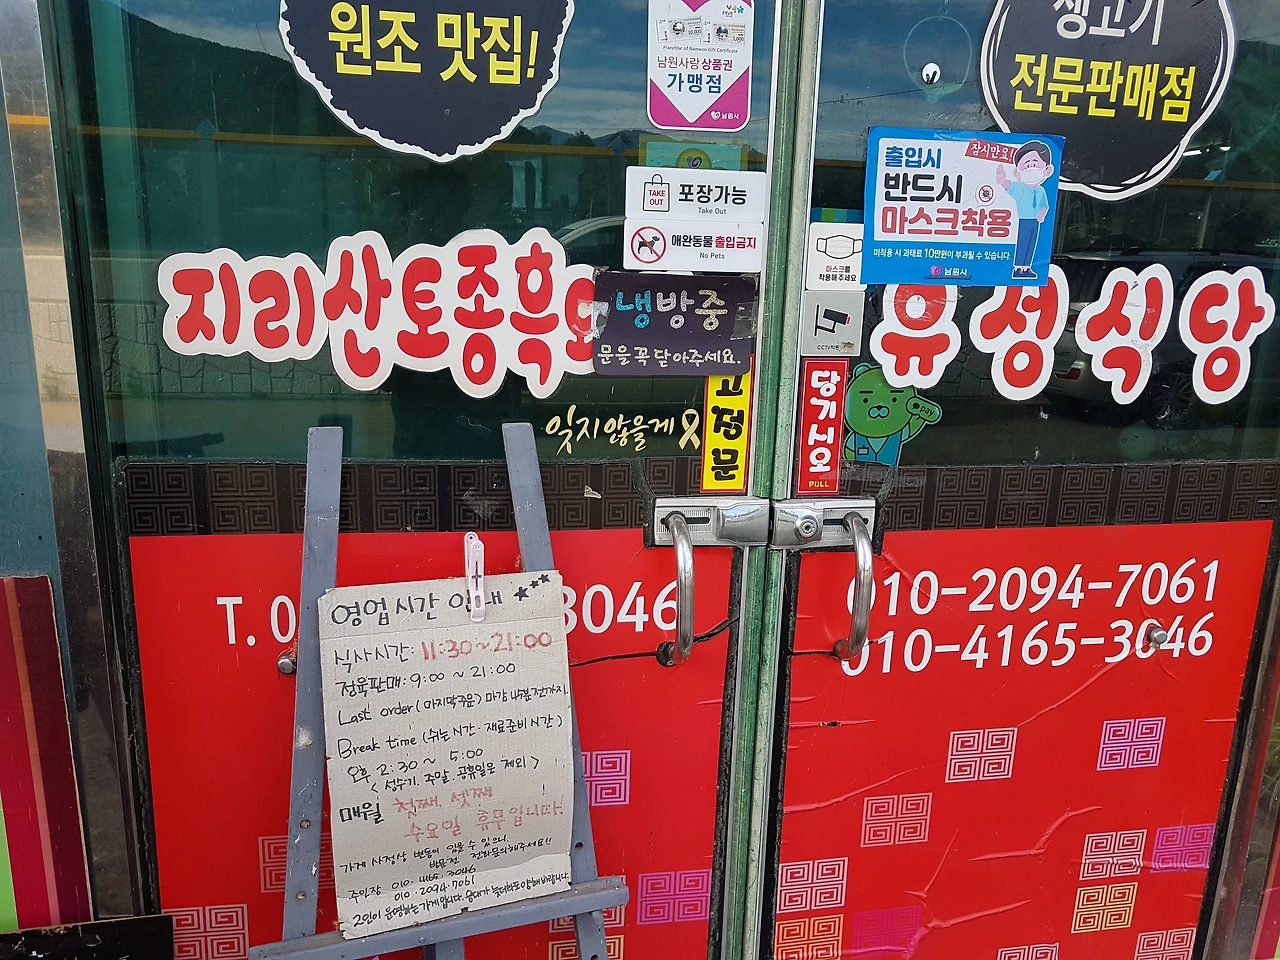 원조 맛집!
Franchise of Namwon Gift Certificate
남원사랑상품권
가맹점
남원시
생고기
전문판매점
TAKE
OUT
포장가능
Take Out
애완동물 출입금지
No Pets
출입시
잠시만요!
반드시
마스크착용
미착용 시 과태료 10만원이 부과될 수 있습니다.
남원시
마스크를
착용해주세요
CCTV작동중
지리산토종흑
냉방중
문을 꼭 닫아주세요.
유성식당
잊지 않을게
고정문
당기시오
PULL
pay
T. 0
3046
010-2094-7061
010-4165-3046
영업시간 안내
식사시간: 11:30~21:00
정육판매: 9:00 ~ 21:00
Last order (마지막주문) 마감 45분전까지.
Break time (쉬는시간·재료준비시간)
오후 2:30 ~ 5:00
< 성수기. 주말. 공휴일은 제외 >
매월 첫째. 셋째
수요일 휴무입니다.
가게 사정상 변동이 있을 수 있으니,
방문전 전화문의해주세요!!
주인장 010·4165·3046
010·2094·7061
2인이 운영하는 가게입니다. 응대가 늦더라도 양해 바랍니다.